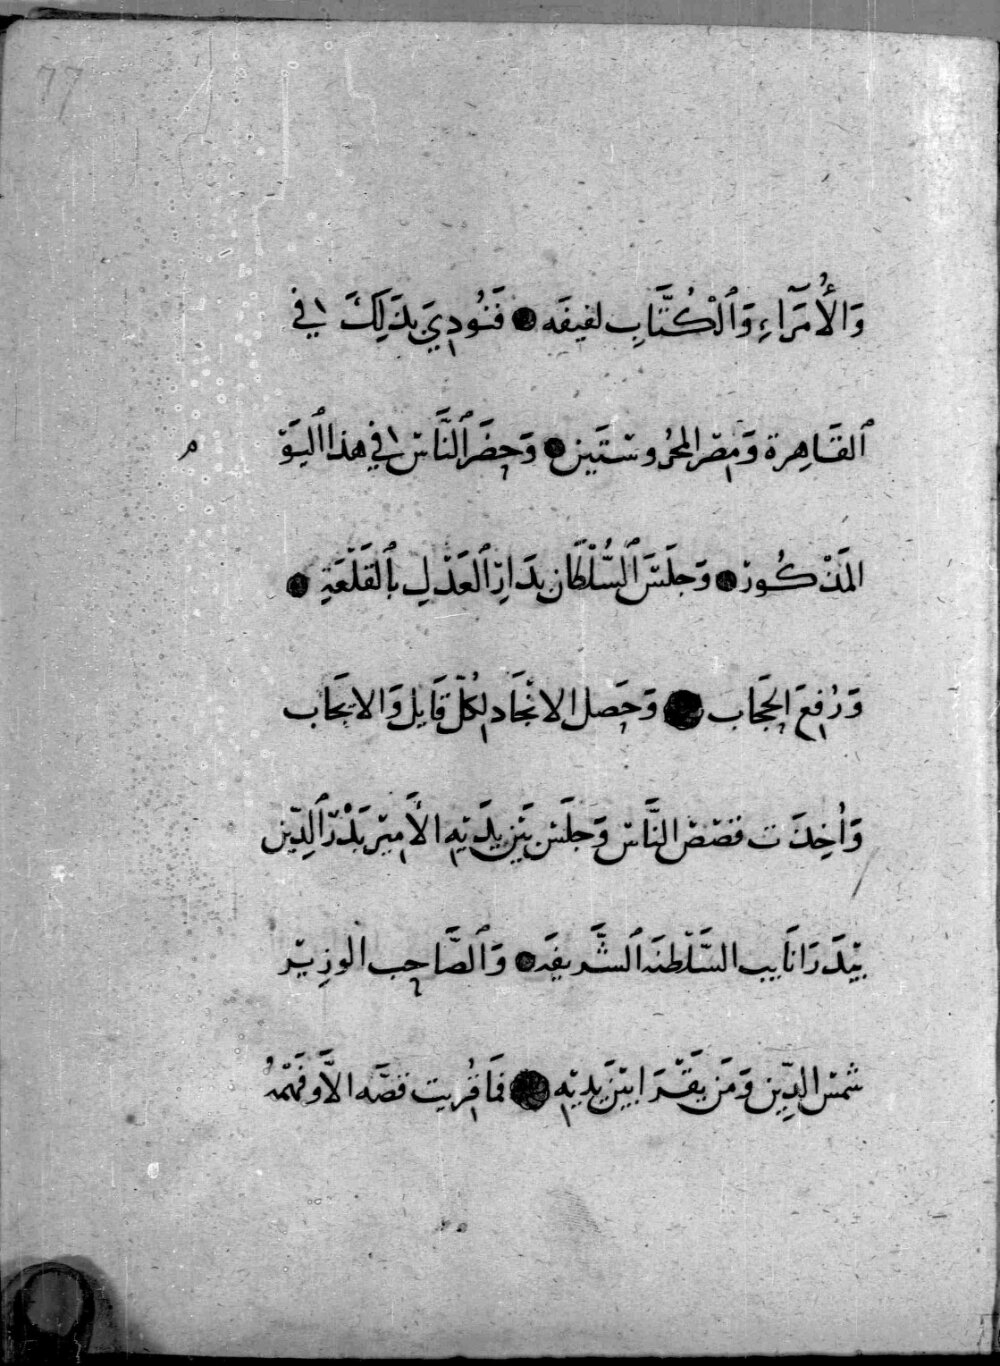 77
وَالْأُمَرَآءِ وَٱلْكُتَّابِ لفيفَه ● فَنُودِيَ بِذَلِكَ في
ٱلقَاهِرة وَمِصْر المحْروسَتَين ● وَحضَر ٱلنَّاسُ في هذا اليَوْم
المَذْكُور ● وَجلَسَ ٱلسُّلْطَان بِدَارِ ٱلعَدْلِ بٱلقَلْعَةِ ●
وَرُفِعَ الحِجَاب ● وَحَصل الانْجَاد لِكُلّ قَايل وَالايجَاب
وَأُخِذَت قصَصُ النَّاس وَجلَسَ بَيْن يَدَيْهِ الأَمِيْر بَدْر ٱلدِّين
بَيْدَرَا نَايب السَّلْطنَه ٱلشَّريفَه ● وَٱلصَّاحِب الوزِيْر
شَمْس الدِّين وَمَن يَقْرَا بيْن يَديْهِ ● فَمَا قُرِيت قصَّه الاَّ وفَهْمُهُ